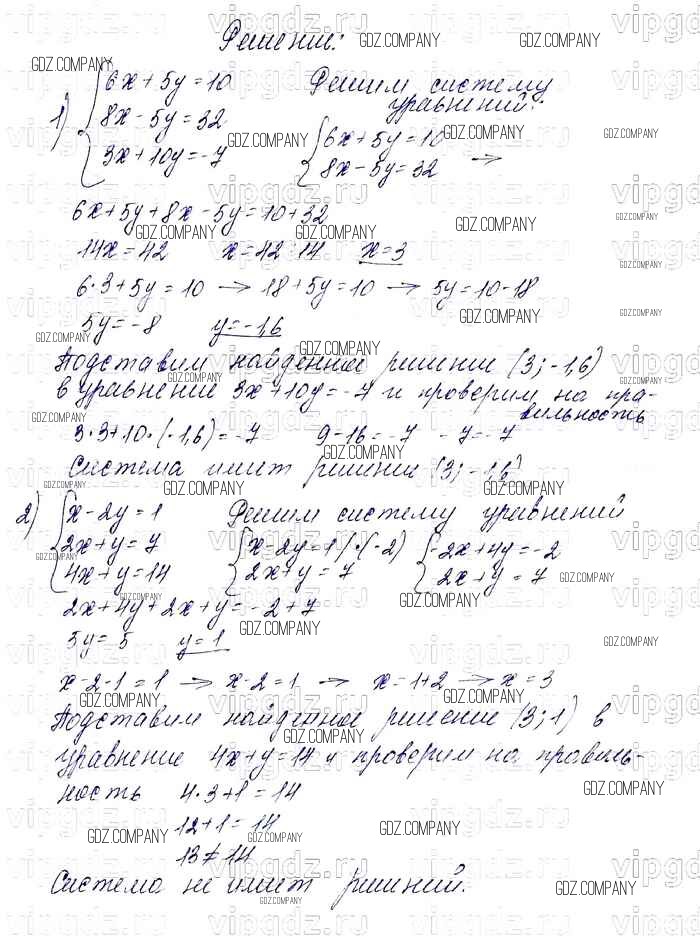 Решение:
1) { 6x + 5y = 10
8x - 5y = 32
3x + 10y = -7
Решим систему
уравнений:
{ 6x + 5y = 10
8x - 5y = 32 →
6x + 5y + 8x - 5y = 10 + 32
14x = 42 x = 42 14 x = 3
6·3 + 5y = 10 → 18 + 5y = 10 → 5y = 10 - 18
5y = -8 y = -1,6
Подставим найденное решение (3; -1,6)
в уравнение 3x + 10y = -7 и проверим на пра-
вильность
3·3 + 10·(-1,6) = -7 9 - 16 = -7 -7 = -7
Система имеет решение (3; -1,6)
2) { x - 2y = 1
2x + y = 7
4x + y = 14
Решим систему уравнений
{ x - 2y = 1 | ·(-2)
2x + y = 7
{ -2x + 4y = -2
2x + y = 7
2x + 4y + 2x + y = -2 + 7
5y = 5 y = 1
x - 2·1 = 1 → x - 2 = 1 → x = 1 + 2 → x = 3
Подставим найденное решение (3; 1) в
уравнение 4x + y = 14 и проверим на правиль-
ность 4·3 + 1 = 14
12 + 1 = 14
13 ≠ 14
Система не имеет решений.
GDZ.COMPANY
vipgdz.ru